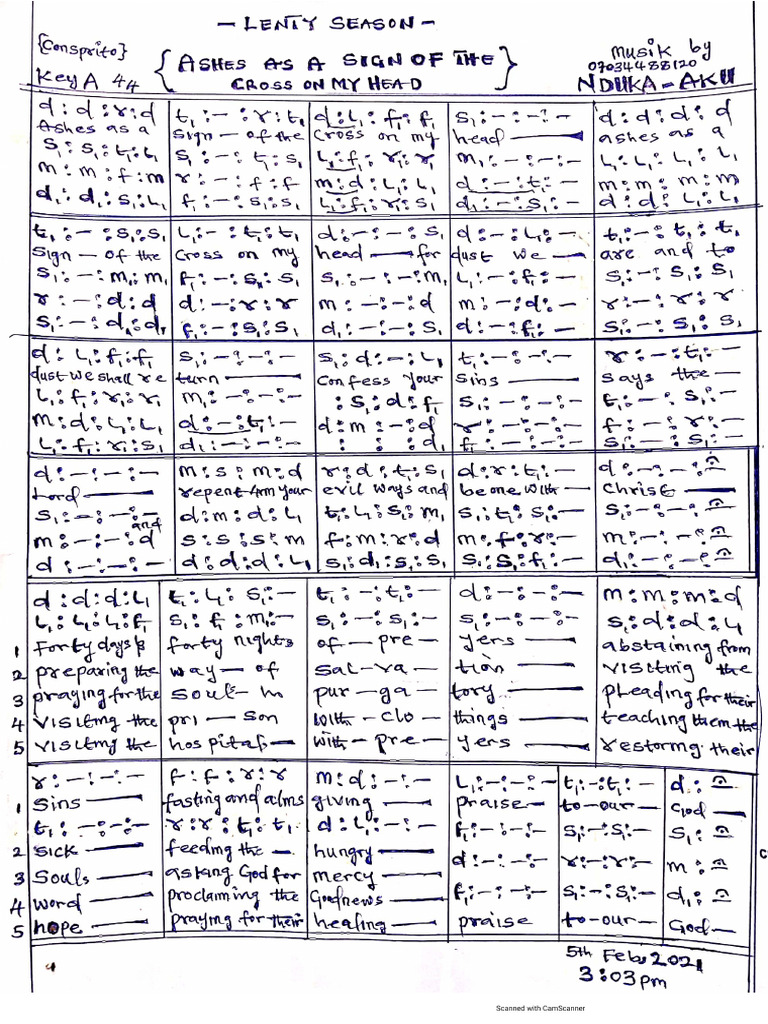 - LENTY SEASON -
{Consprito}
Key A 44
{ASHES AS A SIGN OF THE
CROSS ON MY HEAD}
musik by
07034488120
NDUKA-AKU
d : d : r : d | t₁ : - : r : t₁ | d : L₁ : f₁ : f₁ | s₁ : - : - : - | d : d : d : d
Ashes as a | sign - of the | cross on my | head — | ashes as a
s₁ : s₁ : t₁ : L₁ | s₁ : - : t₁ : s₁ | L₁ : f₁ : r₁ : r₁ | m₁ : - : - : - | L₁ : L₁ : L₁ : L₁
m : m : f : m | r : - : f : f | m : d : L₁ : L₁ | d : - : t₁ : - | m : m : m : m
d₁ : d₁ : s₁ : L₁ | f₁ : - : s₁ : s₁ | L₁ : f₁ : r₁ : s₁ | d₁ : - : s₁ : - | d : d : L₁ : L₁
t₁ : - : s₁ : s₁ | L₁ : - : t₁ : t₁ | d : - : - : s₁ | d : - : L₁ : - | t₁ : - : t₁ : t₁
sign - of the | cross on my | head — for | dust we — | are and to
s₁ : - : m₁ : m₁ | f₁ : - : s₁ : s₁ | s₁ : - : - : m₁ | L₁ : - : f₁ : - | s₁ : - : s₁ : s₁
r : - : d : d | d : - : r : r | m : - : - : d | m : - : d : - | r : - : r : r
s₁ : - : d₁ : d₁ | f₁ : - : s₁ : s₁ | d₁ : - : - : s₁ | d : - : f₁ : - | s₁ : - : s₁ : s₁
d : L₁ : f₁ : f₁ | s₁ : - : - : - | s₁ : d : - : L₁ | t₁ : - : - : - | r : - : t₁ : -
dust we shall re | turn — | confess your | sins — | says the —
L₁ : f₁ : r₁ : r₁ | m₁ : - : - : - | : s₁ : d : f₁ | s₁ : - : - : - | t₁ : - : s₁ : -
m : d : L₁ : L₁ | d : - : t₁ : - | d : m : - : d | s₁ : - : - : - | f : - : r : -
L₁ : f₁ : r₁ : s₁ | d₁ : - : - : - | : : : d₁ | f₁ : - : - : - | s₁ : - : s₁ : -
d : - : - : - | m : s : m : d | r : d : t₁ : s₁ | d : r : t₁ : - | d : - : - : -
Lord — | repent from your | evil ways and | be one with — | Christ —
s₁ : - : - : - | d : m : d : L₁ | t₁ : L₁ : s₁ : m₁ | s₁ : t₁ : s₁ : - | s₁ : - : - : -
and
m : - : - : d | s : s : s : m | f : m : r : d | m : f : r : - | m : - : - : -
d : - : - : - | d : d : d : L₁ | s₁ : d₁ : s₁ : s₁ | s₁ : s₁ : f₁ : - | d₁ : - : - : -
d : d : d : L₁ | t₁ : L₁ : s₁ : - | t₁ : - : t₁ : - | d : - : - : - | m : m : m : d
L₁ : L₁ : L₁ : f₁ | s₁ : f₁ : m₁ : - | s₁ : - : s₁ : - | s₁ : - : - : - | s₁ : d : d : L₁
1 Forty days & | forty nights | of - pre - | yers — | abstaining from
2 preparing the | way - of | sal - va - | tion — | visiting the
3 praying for the | souls in | pur - ga - | tory — | pleading for their
4 visiting the | pri - son | with - clo - | things — | teaching them the
5 visiting the | hospitals - | with - pre - | yers — | restoring their
r : - : - : - | f : f : r : r | m : d : - : - | L₁ : - : - : - | t₁ : - : t₁ : - | d :
1 sins — | fasting and alms | giving — | praise - | to - our - | God -
t₁ : - : - : - | r : r : t₁ : t₁ | d : L₁ : - : - | f₁ : - : - : - | s₁ : - : s₁ : - | s₁ :
2 sick — | feeding the - | hungry —
3 souls — | asking God for | mercy — | d : - : - : - | r : - : r : - | m :
4 word — | proclaiming the | Goodnews — | f₁ : - : - : - | s₁ : - : s₁ : - | d₁ :
5 hope — | praying for their | healing — | praise | to - our - | God -
5th Feb, 2021
3:03pm
Scanned with CamScanner